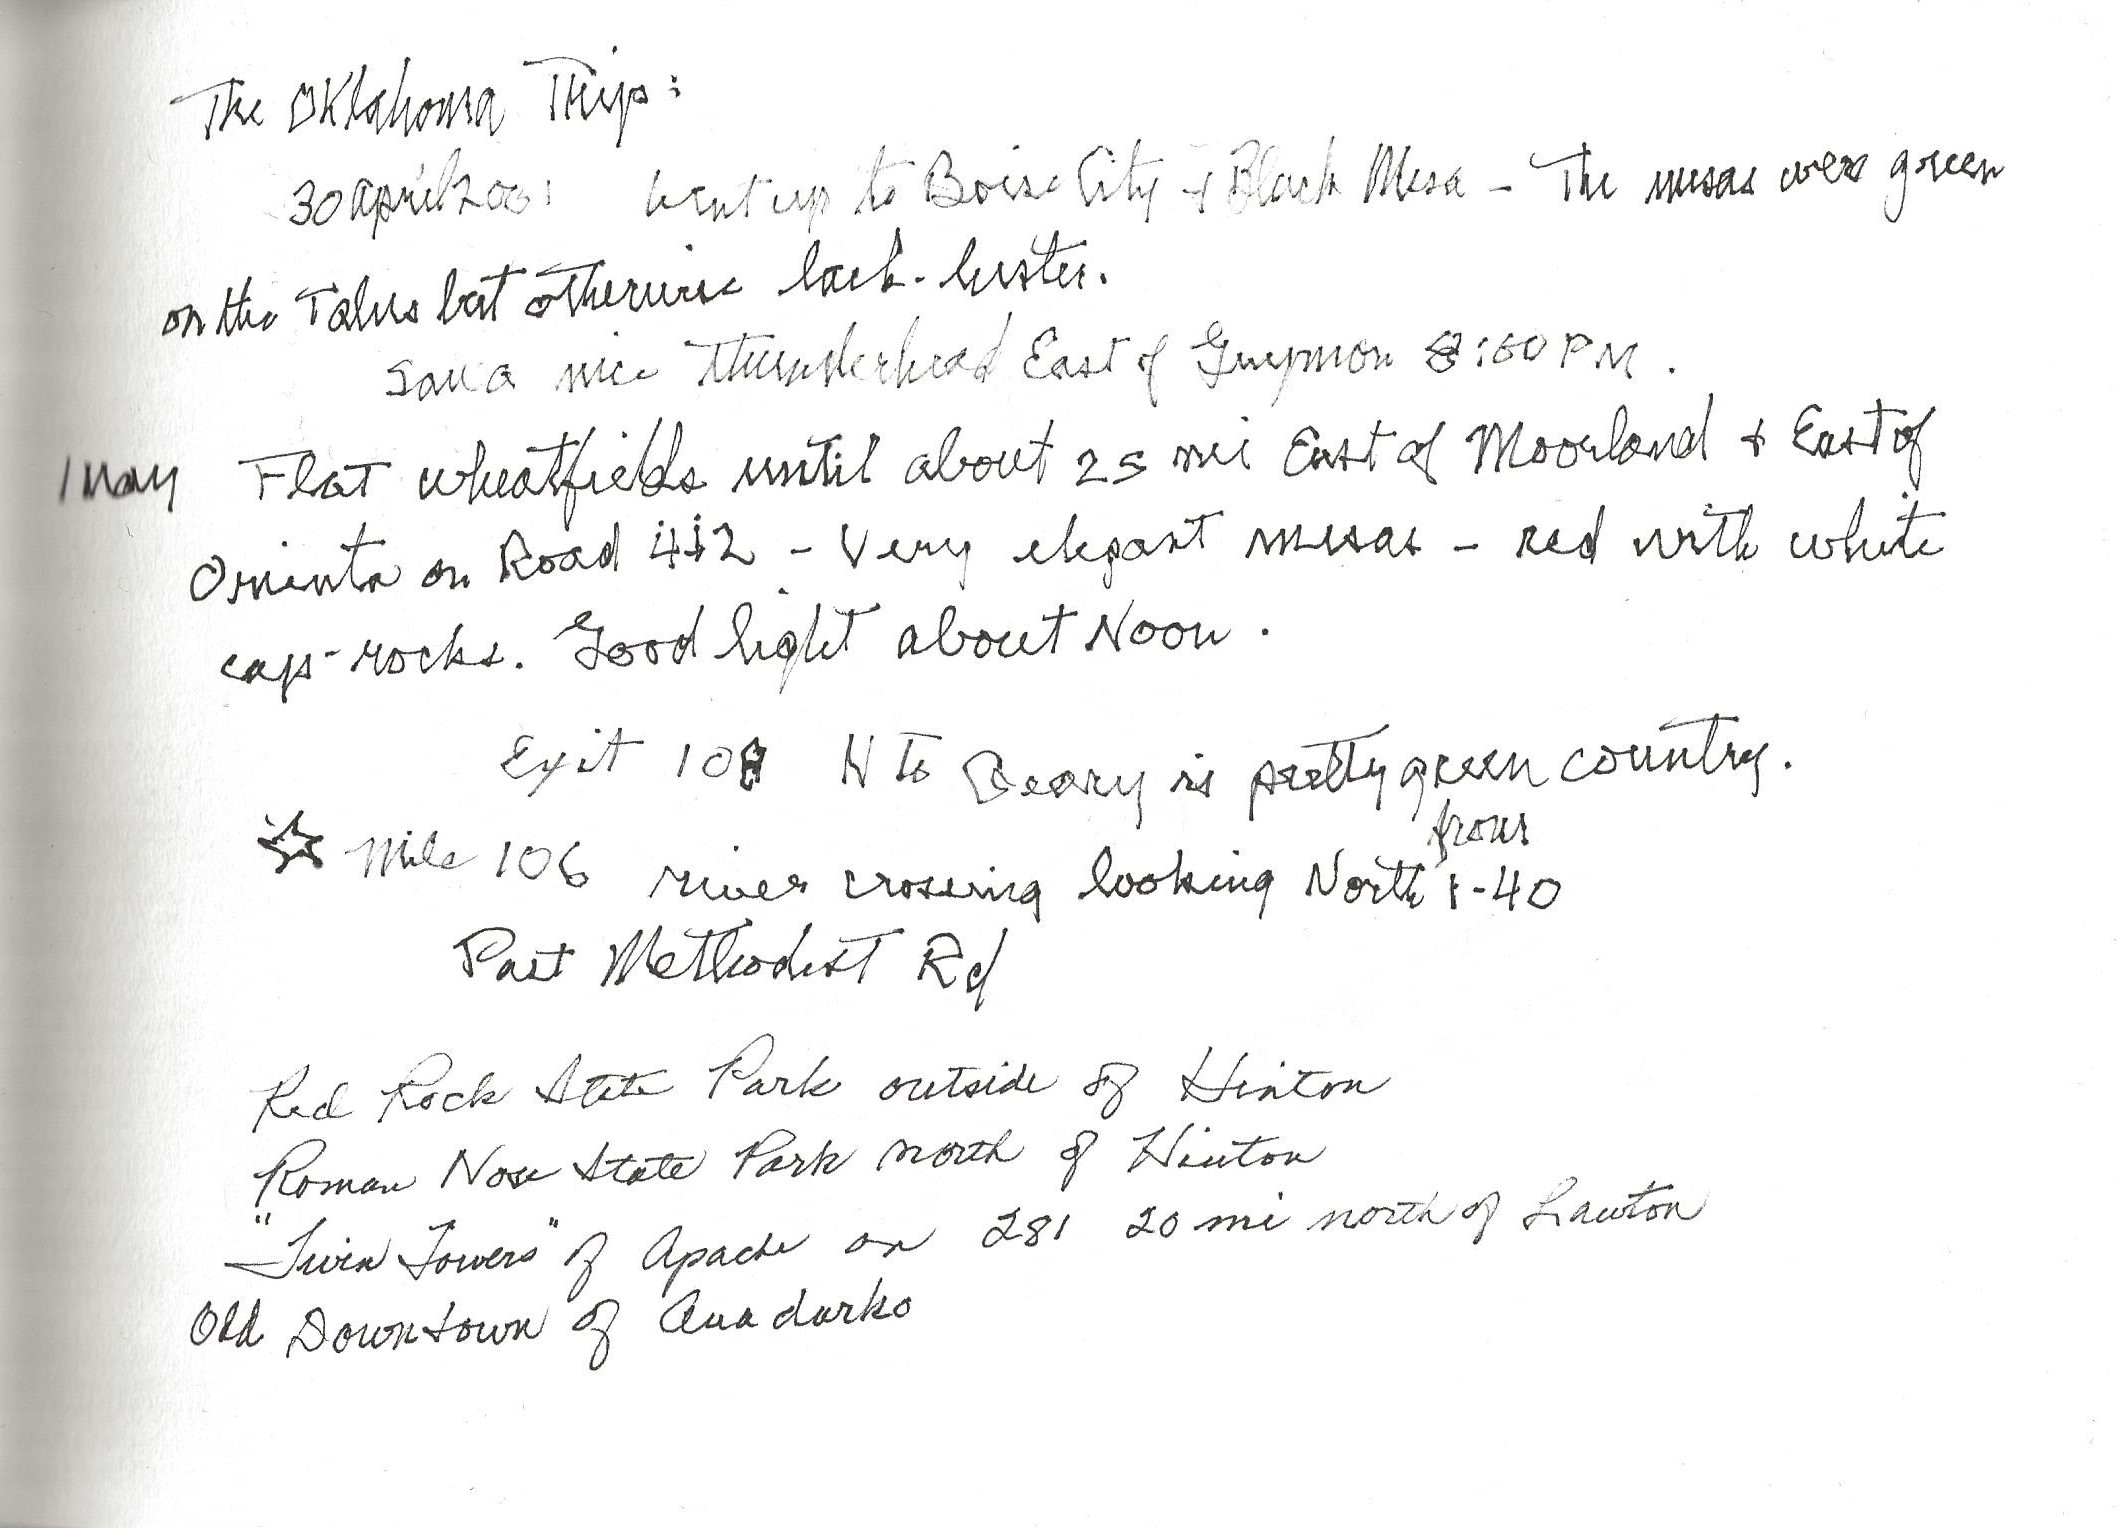 The Oklahoma Trip:
30 April 2001 Went up to Boise City & Black Mesa - The mesas were green
on the Talus but otherwise lack-luster.
Saw a nice thunderhead East of Guymon 8:00 PM.
1 May Flat wheatfields until about 25 mi East of Moorland & East of
Orienta on Road 412 - Very elegant mesas - red with white
cap-rocks. Good light about Noon.
Exit 108 N to Geary is pretty green country.
☆ Mile 106 river crossing looking North from I-40
Past Methodist Rd
Red Rock State Park outside of Hinton
Roman Nose State Park north of Hinton
"Twin Towers" of Apache on 281 20 mi north of Lawton
Old Downtown of Anadarko